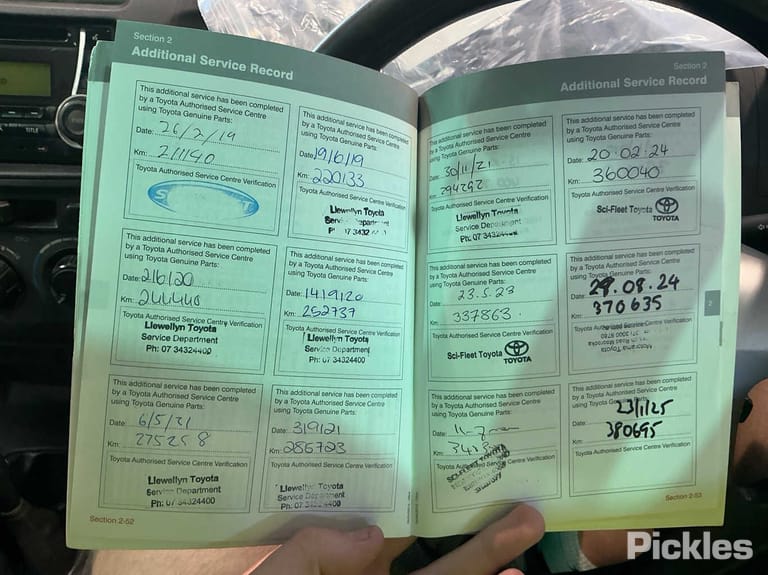 Section 2
Additional Service Record
This additional service has been completed
by a Toyota Authorised Service Centre
using Toyota Genuine Parts:
Date: 26/2/19
Km: 211140
Toyota Authorised Service Centre Verification
This additional service has been completed
by a Toyota Authorised Service Centre
using Toyota Genuine Parts:
Date: 19/6/19
Km: 220133
Toyota Authorised Service Centre Verification
Llewellyn Toyota
Service Department
This additional service has been completed
by a Toyota Authorised Service Centre
using Toyota Genuine Parts:
Date: 2/6/20
Km: 244440
Toyota Authorised Service Centre Verification
Llewellyn Toyota
Service Department
Ph: 07 34324400
This additional service has been completed
by a Toyota Authorised Service Centre
using Toyota Genuine Parts:
Date: 14/9/20
Km: 252737
Toyota Authorised Service Centre Verification
Llewellyn Toyota
Service Department
Ph: 07 34324400
This additional service has been completed
by a Toyota Authorised Service Centre
using Toyota Genuine Parts:
Date: 6/5/21
Km: 275258
Toyota Authorised Service Centre Verification
Llewellyn Toyota
Service Department
Ph: 07 34324400
This additional service has been completed
by a Toyota Authorised Service Centre
using Toyota Genuine Parts:
Date: 3/9/21
Km: 286723
Toyota Authorised Service Centre Verification
Llewellyn Toyota
Service Department
Ph: 07 34324400
Section 2-52
Section 2
Additional Service Record
This additional service has been completed
by a Toyota Authorised Service Centre
using Toyota Genuine Parts:
Date: 30/11/21
Km: 294292
Toyota Authorised Service Centre Verification
Llewellyn Toyota
Service Department
This additional service has been completed
by a Toyota Authorised Service Centre
using Toyota Genuine Parts:
Date: 20.02.24
Km: 360040
Toyota Authorised Service Centre Verification
Sci-Fleet Toyota
TOYOTA
This additional service has been completed
by a Toyota Authorised Service Centre
using Toyota Genuine Parts:
Date: 23.5.23
Km: 337863
Toyota Authorised Service Centre Verification
Sci-Fleet Toyota
TOYOTA
This additional service has been completed
by a Toyota Authorised Service Centre
using Toyota Genuine Parts:
Date: 29.08.24
Km: 370635
Toyota Authorised Service Centre Verification
2
This additional service has been completed
by a Toyota Authorised Service Centre
using Toyota Genuine Parts:
Date:
Km:
Toyota Authorised Service Centre Verification
This additional service has been completed
by a Toyota Authorised Service Centre
using Toyota Genuine Parts:
Date: 23/1/25
Km: 380695
Toyota Authorised Service Centre Verification
Section 2-53
TITLE
Pickles